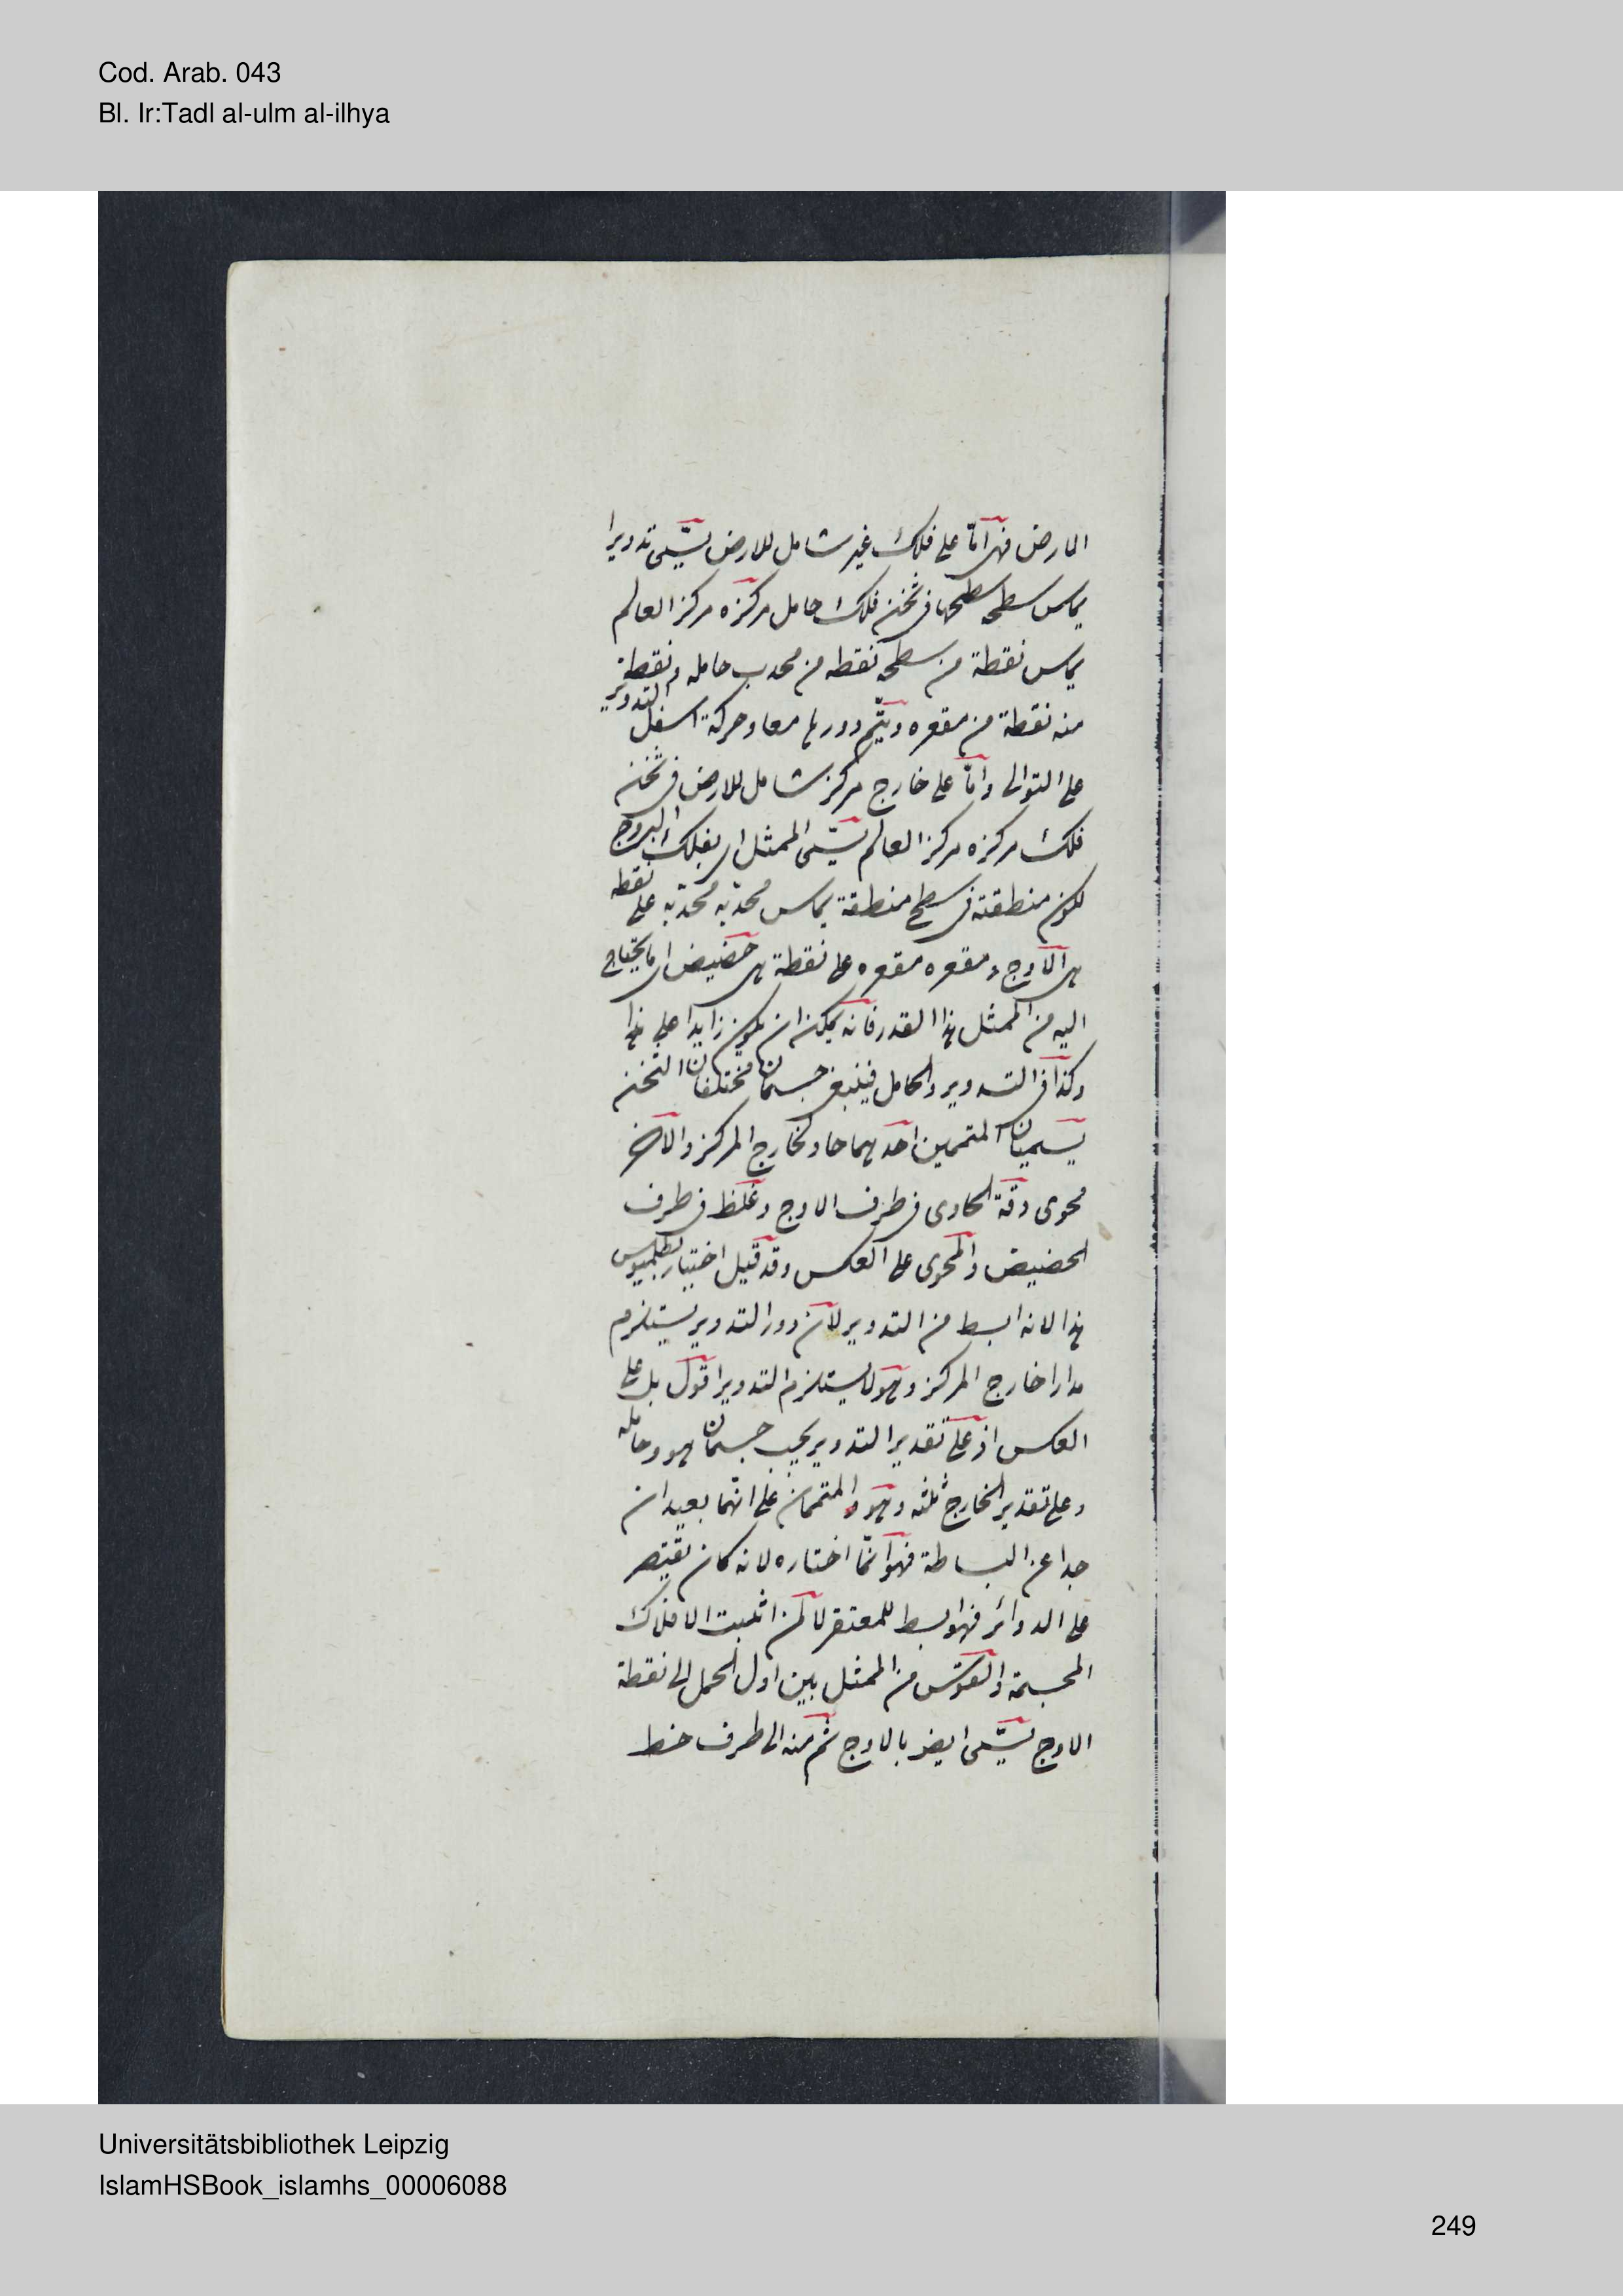 Cod. Arab. 043
Bl. Ir:Tadl al-ulm al-ilhya
الارض فهى امّا على فلك غير شامل للارض يسمّى تدويرا
يماس سطحه سطحها فى ثخن فلك حامل مركزه مركز العالم
يماس نقطة من سطحه نقطه من محدب حامله ونقطة
منه نقطة من مقعره ويتم دورها معا وحركة اسفل التدوير
على التوالى وامّا على خارج مركز شامل للارض فى ثخن
فلك مركزه مركز العالم يسمّى الممثل اى بفلك البروج
لكون منطقته فى سطح منطقة يماس محدبه محدبه على نقطه
هى الاوج ومقعره مقعره على نقطة هى حضيض اى ما يحتاج
اليه من الممثل هذا القدر فانه يمكن ان يكون زايدا على هذا
وكذا فى التدوير والحامل فينبغى جسمان مختلفان الثخن
يسميان المتممين احدهما حاو لخارج المركز والاخر
محوى ورقة الحاوى فى طرف الاوج وغلظ فى طرف
الحضيض والمحوى على العكس وقد قيل اختيار بطلميوس
هذا لانه ابسط من التدوير لان دور التدوير يستلزم
مدارا خارج المركز وهو لا يستلزم التدوير اقول بل على
العكس اذ على تقدير التدوير يجب جسمان هو وحامله
وعلى تقدير الخارج ثلثه وهو والمتممان على انهما بعيدان
جدا عن البساطة فهو انما اختاره لانه كان يقتصر
على الدوائر فهو ابسط للمقتصر لا لمن اثبت الافلاك
المجسمة والقوس من الممثل بين اول الحمل الى نقطة
الاوج يسمّى ايضا بالاوج ثم منه الى طرف خط
Universitätsbibliothek Leipzig
IslamHSBook_islamhs_00006088
249